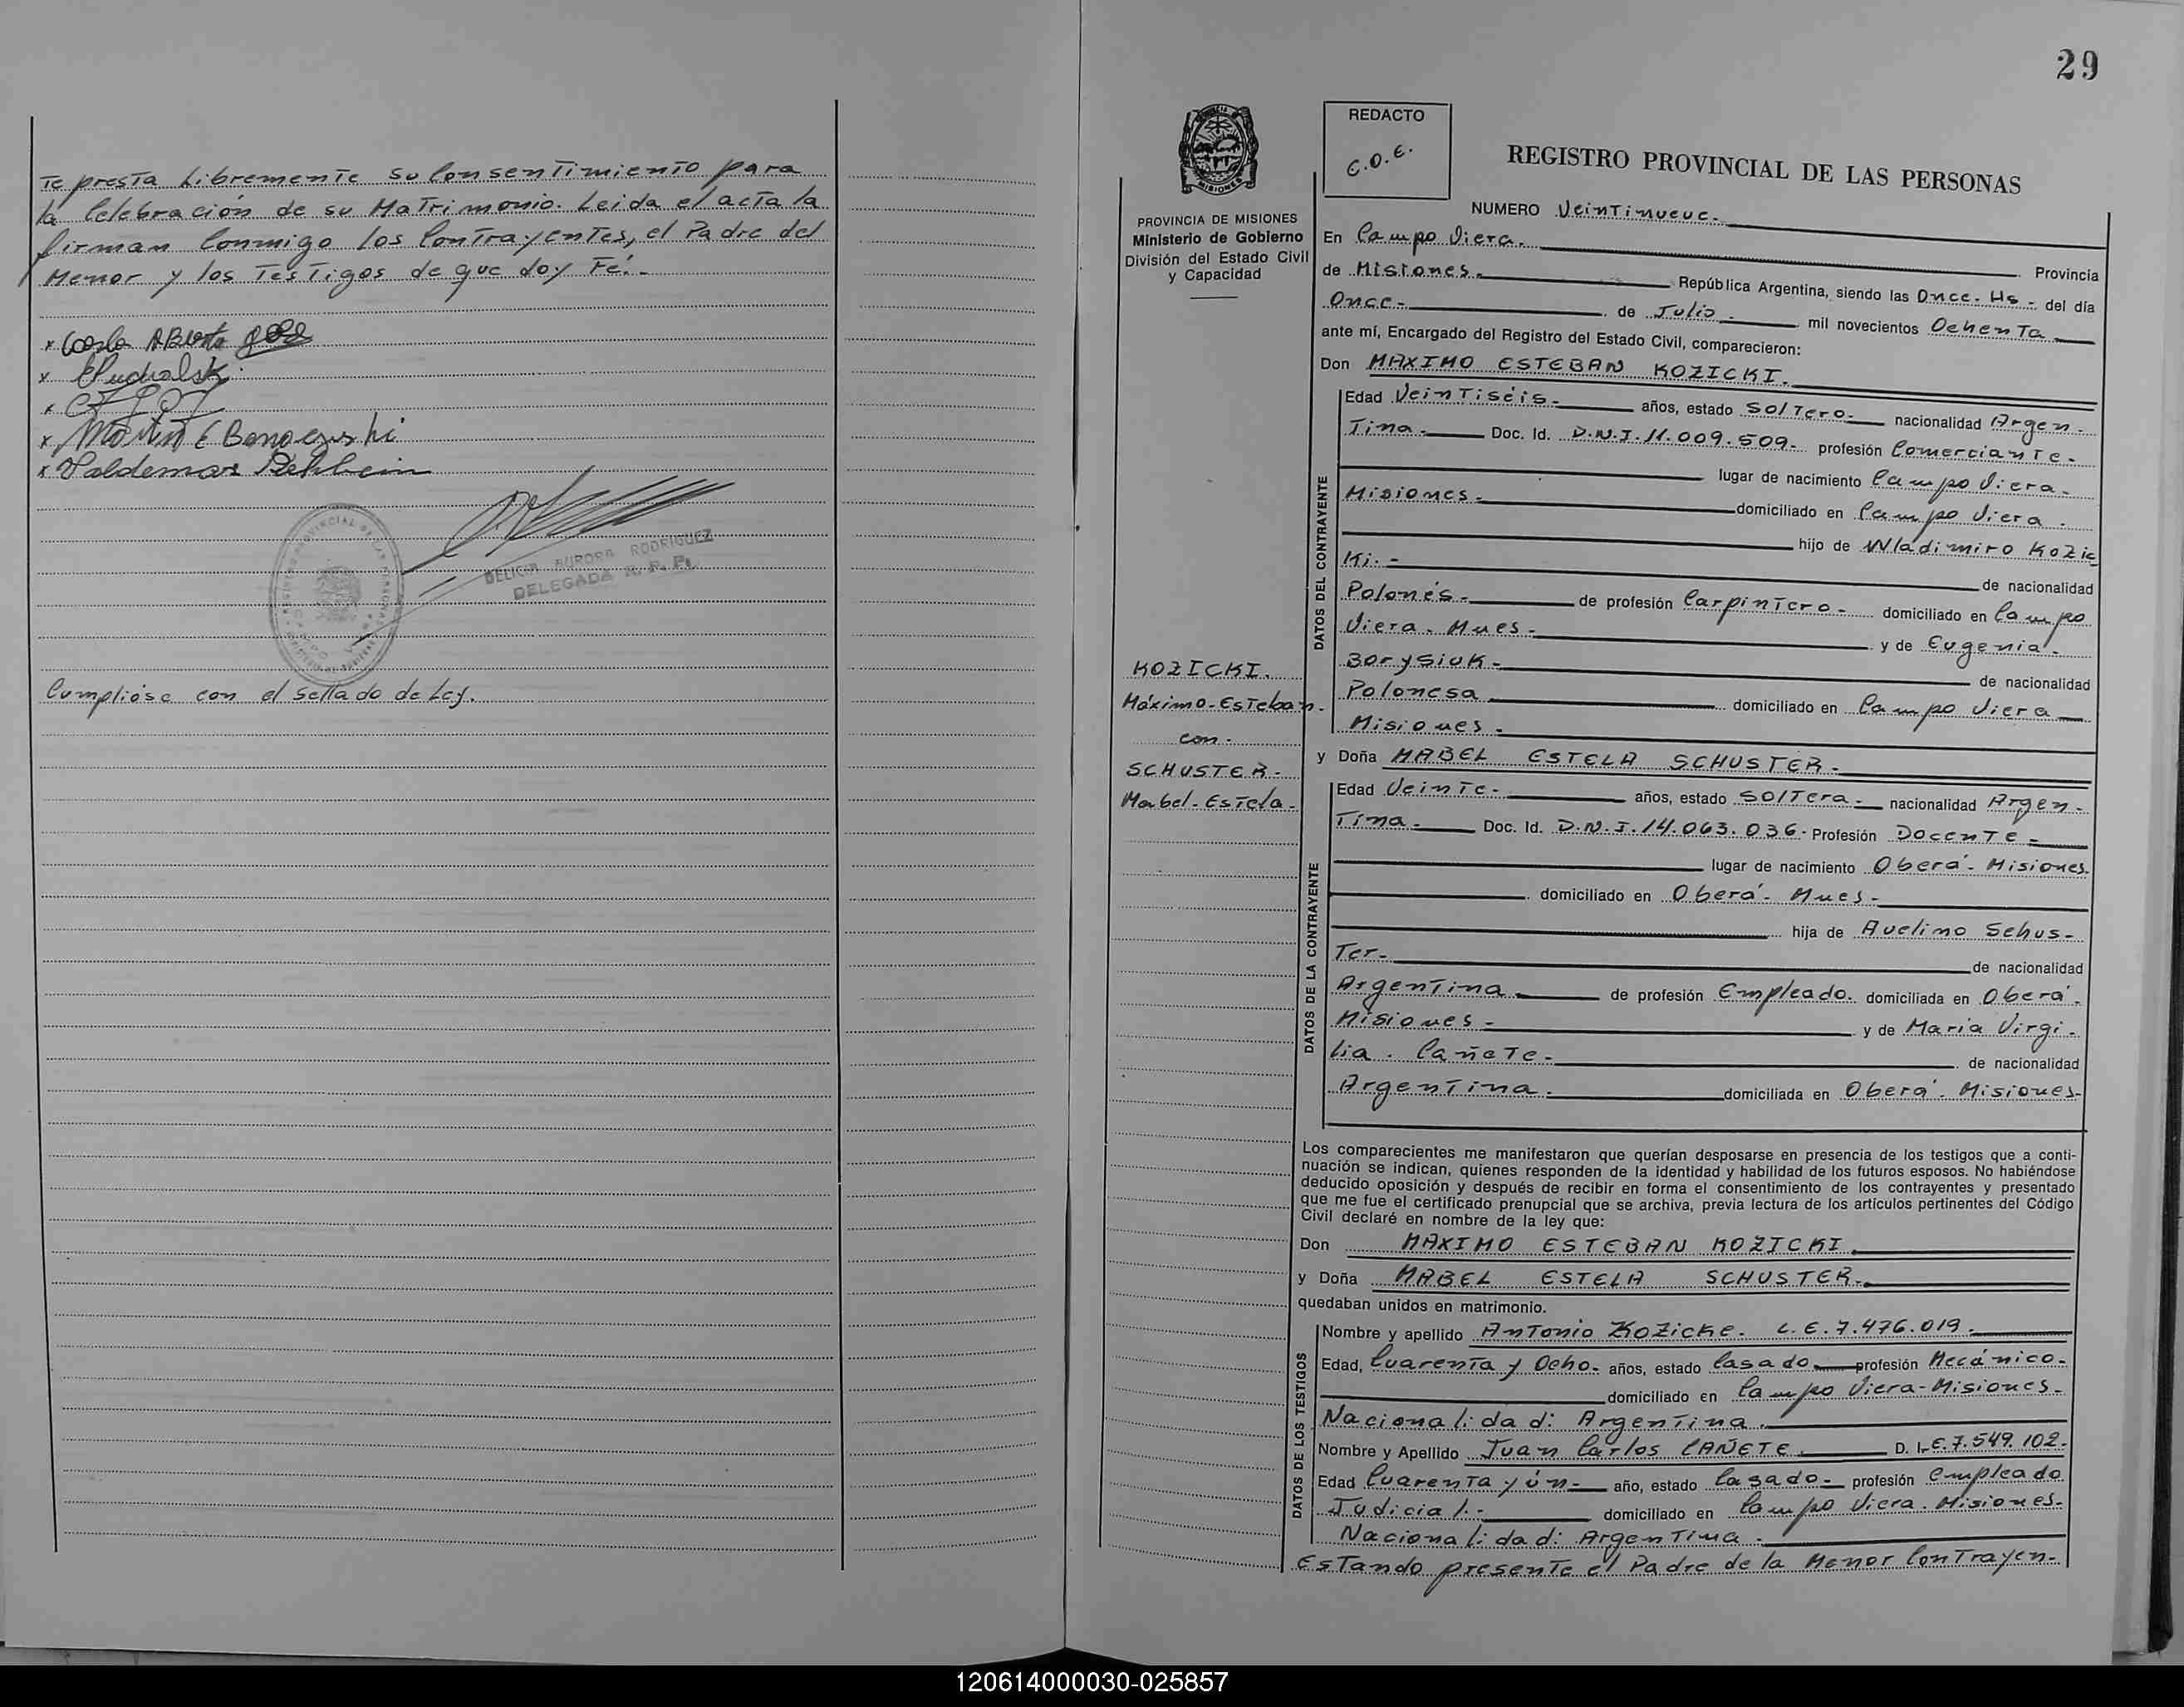 Te presta Libremente su Consentimiento para
la Celebración de su Matrimonio. Leida el acta la
firman Conmigo los Contrayentes, el Padre del
Menor y los Testigos de que doy Fé.-
x Carlos Alberto
x
x
x E Bonaczuski
x Valdemar Rehbein
DELICIA AURORA RODRIGUEZ
DELEGADA R. P. P.
Cumplióse con el Sellado de Ley.
29
REDACTO
C.O.E.
REGISTRO PROVINCIAL DE LAS PERSONAS
MISIONES
PROVINCIA DE MISIONES
Ministerio de Gobierno
División del Estado Civil
y Capacidad
KOZICKI.
Máximo-Esteban-
con-
SCHUSTER-
Mabel-Estela-
NUMERO Veintinueve.-
En Campo Viera. Provincia
de Misiones. República Argentina, siendo las Once-Hs- del día
Once- de Julio- mil novecientos Ochenta
ante mí, Encargado del Registro del Estado Civil, comparecieron:
Don MAXIMO ESTEBAN KOZICKI.
DATOS DEL CONTRAYENTE
Edad Veintiséis- años, estado Soltero- nacionalidad Argen-
Tina- Doc. Id. D.N.I.11.009.509- profesión Comerciante-
lugar de nacimiento Campo Viera-
Misiones- domiciliado en Campo Viera.
hijo de Wladimiro Kozic
Ki.- de nacionalidad
Polonés- de profesión Carpintero- domiciliado en Campo
Viera. Mnes- y de Eugenia-
Borysiuk- de nacionalidad
Polonesa domiciliado en Campo Viera
Misiones-
y Doña MABEL ESTELA SCHUSTER-
DATOS DE LA CONTRAYENTE
Edad Veinte- años, estado Soltera- nacionalidad Argen-
Tina- Doc. Id. D.N.I.14.063.036- Profesión Docente-
lugar de nacimiento Oberá- Misiones
domiciliado en Oberá- Mnes-
hija de Avelino Schus-
Ter- de nacionalidad
Argentina de profesión Empleado. domiciliada en Oberá-
Misiones- y de Maria Virgi-
lia. Cañete- de nacionalidad
Argentina- domiciliada en Oberá. Misiones-
Los comparecientes me manifestaron que querían desposarse en presencia de los testigos que a conti-
nuación se indican, quienes responden de la identidad y habilidad de los futuros esposos. No habiéndose
deducido oposición y después de recibir en forma el consentimiento de los contrayentes y presentado
que me fue el certificado prenupcial que se archiva, previa lectura de los artículos pertinentes del Código
Civil declaré en nombre de la ley que:
Don MAXIMO ESTEBAN KOZICKI.
y Doña MABEL ESTELA SCHUSTER-
quedaban unidos en matrimonio.
DATOS DE LOS TESTIGOS
Nombre y apellido Antonio Kozicke- L.E.7.476.019.
Edad, Cuarenta y Ocho- años, estado Casado- profesión Mecánico-
domiciliado en Campo Viera-Misiones-
Nacionalidad: Argentina.
Nombre y Apellido Juan Carlos CAÑETE. D. I.E.7.549.102-
Edad Cuarenta y ún- año, estado Casado- profesión Empleado
Judicial- domiciliado en Campo Viera. Misiones-
Nacionalidad: Argentina.
Estando presente el Padre de la Menor Contrayen-
120614000030-025857